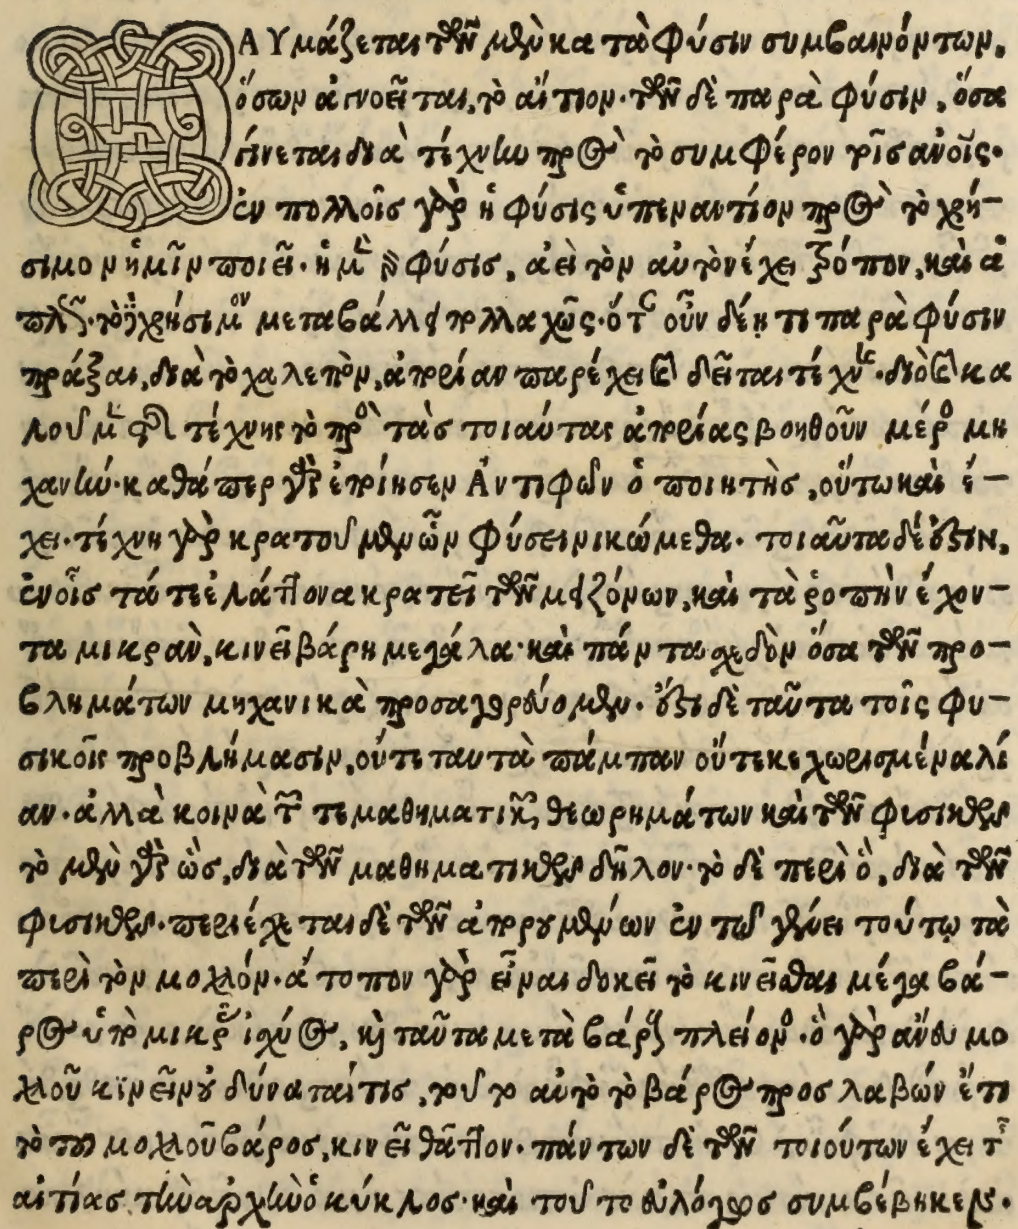 ΘΑΥμάζεται τῶν μὲν κατὰ φύσιν συμβαινόντων,
ὅσων ἀγνοεῖται, τὸ αἴτιον· τῶν δὲ παρὰ φύσιν, ὅσα
γίνεται διὰ τέχνην πρὸς τὸ συμφέρον τοῖς ἀνοῖς·
ἐν πολλοῖς γὰρ ἡ φύσις ὑπεναντίον πρὸς τὸ χρή-
σιμον ἡμῖν ποιεῖ· ἡ μὲν γὰρ φύσις, ἀεὶ τὸν αὐτὸν ἔχει τρόπον, καὶ ἁ
πλῶς· τὸ δὲ χρήσιμον μεταβάλλει πολλαχῶς· ὅταν οὖν δέῃ τι παρὰ φύσιν
πρᾶξαι, διὰ τὸ χαλεπὸν, ἀπορίαν παρέχει καὶ δεῖται τέχνης· διὸ καὶ κα
λοῦμεν τῆς τέχνης τὸ πρὸς τὰς τοιαύτας ἀπορίας βοηθοῦν μέρος μη
χανὴν· καθάπερ γὰρ ἐποίησεν Ἀντιφῶν ὁ ποιητὴς, οὕτω καὶ ἔ-
χει· τέχνῃ γὰρ κρατοῦμεν ὧν φύσει νικώμεθα· τοιαῦτα δέ ἐστιν,
ἐν οἷς τά τε ἐλάττονα κρατεῖ τῶν μειζόνων, καὶ τὰ ῥοπὴν ἔχον-
τα μικρὰν, κινεῖ βάρη μεγάλα· καὶ πάντα σχεδὸν ὅσα τῶν προ-
βλημάτων μηχανικὰ προσαγορεύομεν· ἔστι δὲ ταῦτα τοῖς φυ-
σικοῖς προβλήμασιν, οὔτε ταυτὰ πάμπαν οὔτε κεχωρισμένα λί
αν· ἀλλὰ κοινὰ τῶν τε μαθηματικῶν θεωρημάτων καὶ τῶν φισικῶν
τὸ μὲν γὰρ ὡς, διὰ τῶν μαθηματικῶν δῆλον· τὸ δὲ περὶ ὃ, διὰ τῶν
φισικῶν· περιέχεται δὲ τῶν ἀπορουμένων ἐν τῷ γένει τούτῳ τὰ
περὶ τὸν μοχλόν· ἄτοπον γὰρ εἶναι δοκεῖ τὸ κινεῖσθαι μέγα βά-
ρος ὑπὸ μικρᾶς ἰσχύος, καὶ ταῦτα μετὰ βάρους πλείονος· ὃ γὰρ ἄνευ μο
χλοῦ κινεῖν οὐ δύναταί τις, τοῦτο αὐτὸ τὸ βάρος προσλαβὼν ἔτι
τὸ τοῦ μοχλοῦ βάρος, κινεῖ θᾶττον· πάντων δὲ τῶν τοιούτων ἔχει τῆς
αἰτίας τὴν ἀρχὴν ὁ κύκλος· καὶ τοῦτο εὐλόγως συμβέβηκεν·